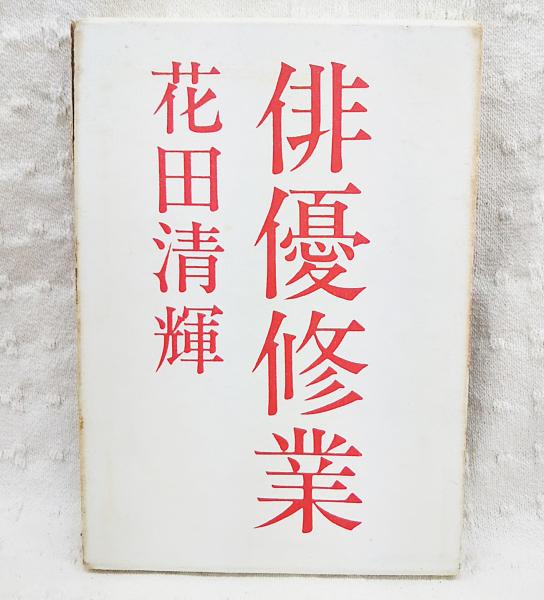 俳優修業
花田清輝